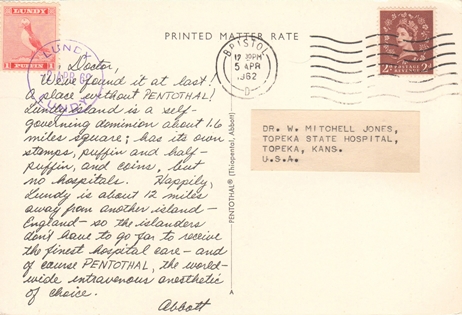 LUNDY
1 PUFFIN 1
LUNDY
APR 62
LUNDY
PRINTED MATTER RATE
BRISTOL
5 APR
1962
D
POSTAGE REVENUE
Doctor,
We've found it at last!
a place without PENTOTHAL!
Lundy Island is a self-
governing dominion about 1.6
miles square; has its own
stamps, puffin and half-
puffin, and coins, but
no hospitals. Happily,
Lundy is about 12 miles
away from another island—
England—so the islanders
don't have to go far to receive
the finest hospital care—and
of cause PENTOTHAL, the world-
wide intravenous anesthetic
of choice.
Abbott
PENTOTHAL® (Thiopental, Abbott)
DR. W. MITCHELL JONES,
TOPEKA STATE HOSPITAL,
TOPEKA, KANS.
U.S.A.